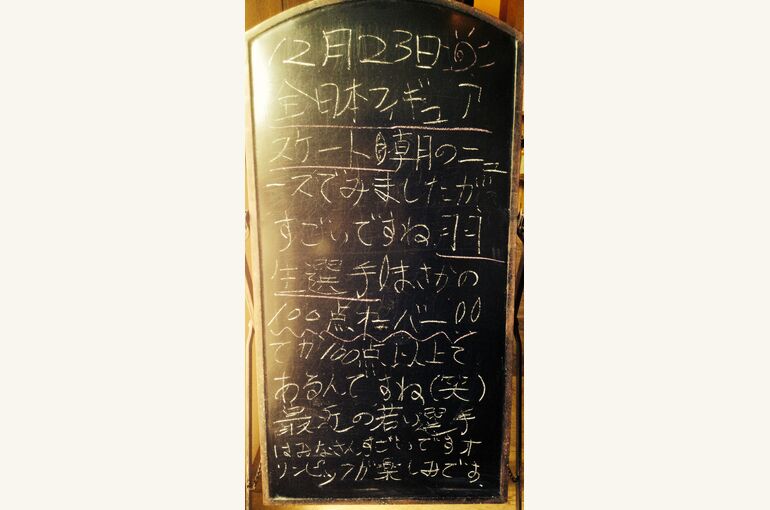 12月23日
全日本フィギュア
スケート朝のニュ
ースでみましたが
すごいですね羽
生選手!まさかの
100点オーバー!!
てか100点以上て
あるんですね(笑)
最近の若い選手
はみなさんすごいですオ
リンピックが楽しみです。